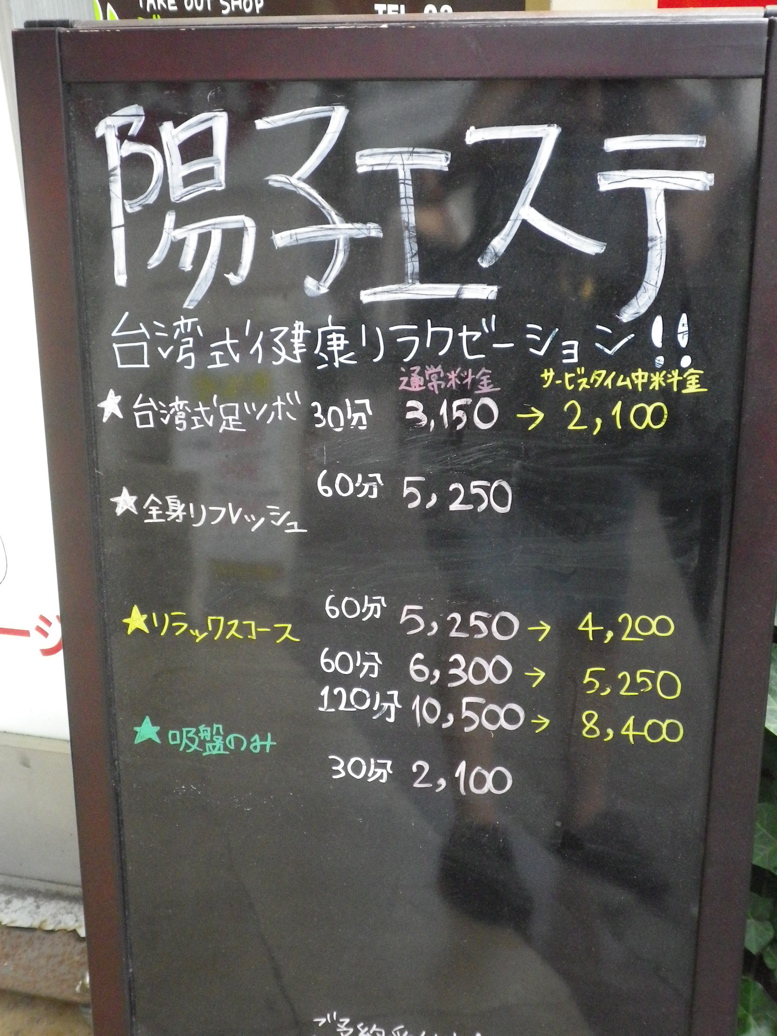 TAKE OUT SHOP
TEL
陽子エステ
台湾式健康リラクゼーション!!
通常料金 サービスタイム中料金
★台湾式足ツボ 30分 3,150 → 2,100
60分 5,250
★全身リフレッシュ
60分 5,250 → 4,200
★リラックスコース
60分 6,300 → 5,250
120分 10,500 → 8,400
★吸盤のみ
30分 2,100